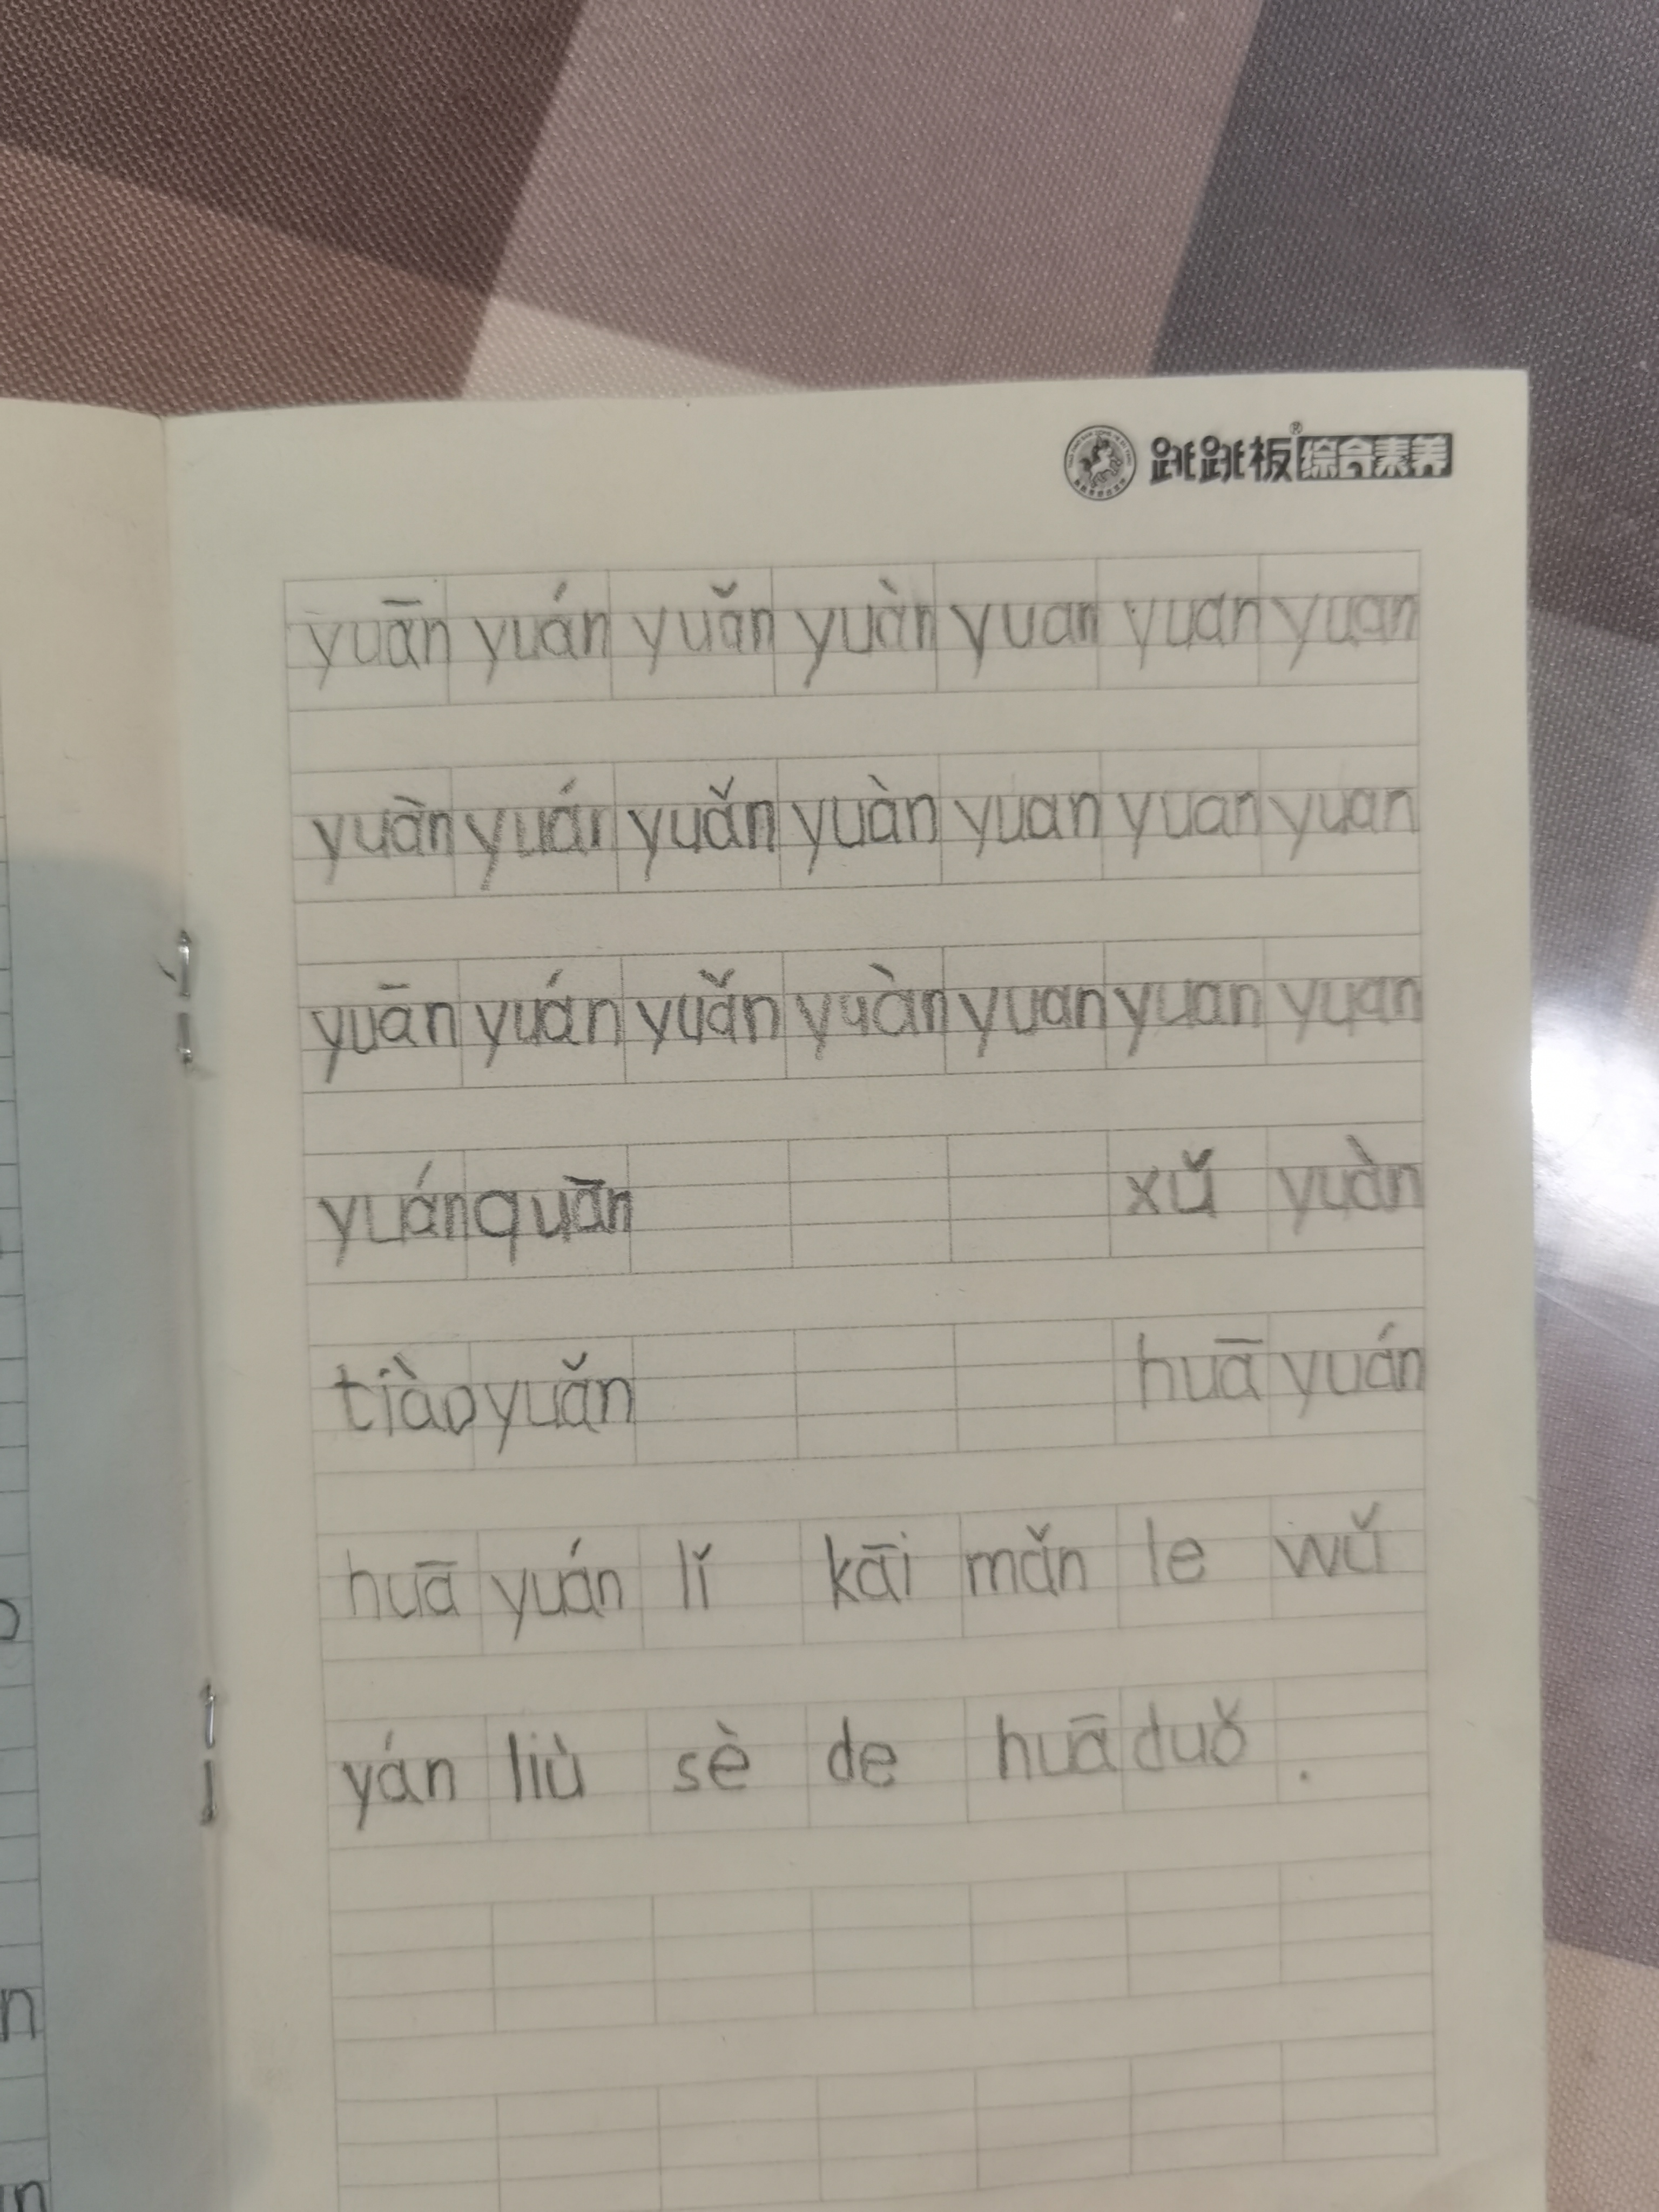 跳跳板®综合素养
yuān yuán yuǎn yuàn yuan yuan yuan
yuàn yuán yuǎn yuàn yuan yuan yuan
yuān yuán yuǎn yuàn yuan yuan yuan
yuán quān xǔ yuàn
tiào yuǎn huā yuán
huā yuán lǐ kāi mǎn le wǔ
yán liù sè de huā duǒ .